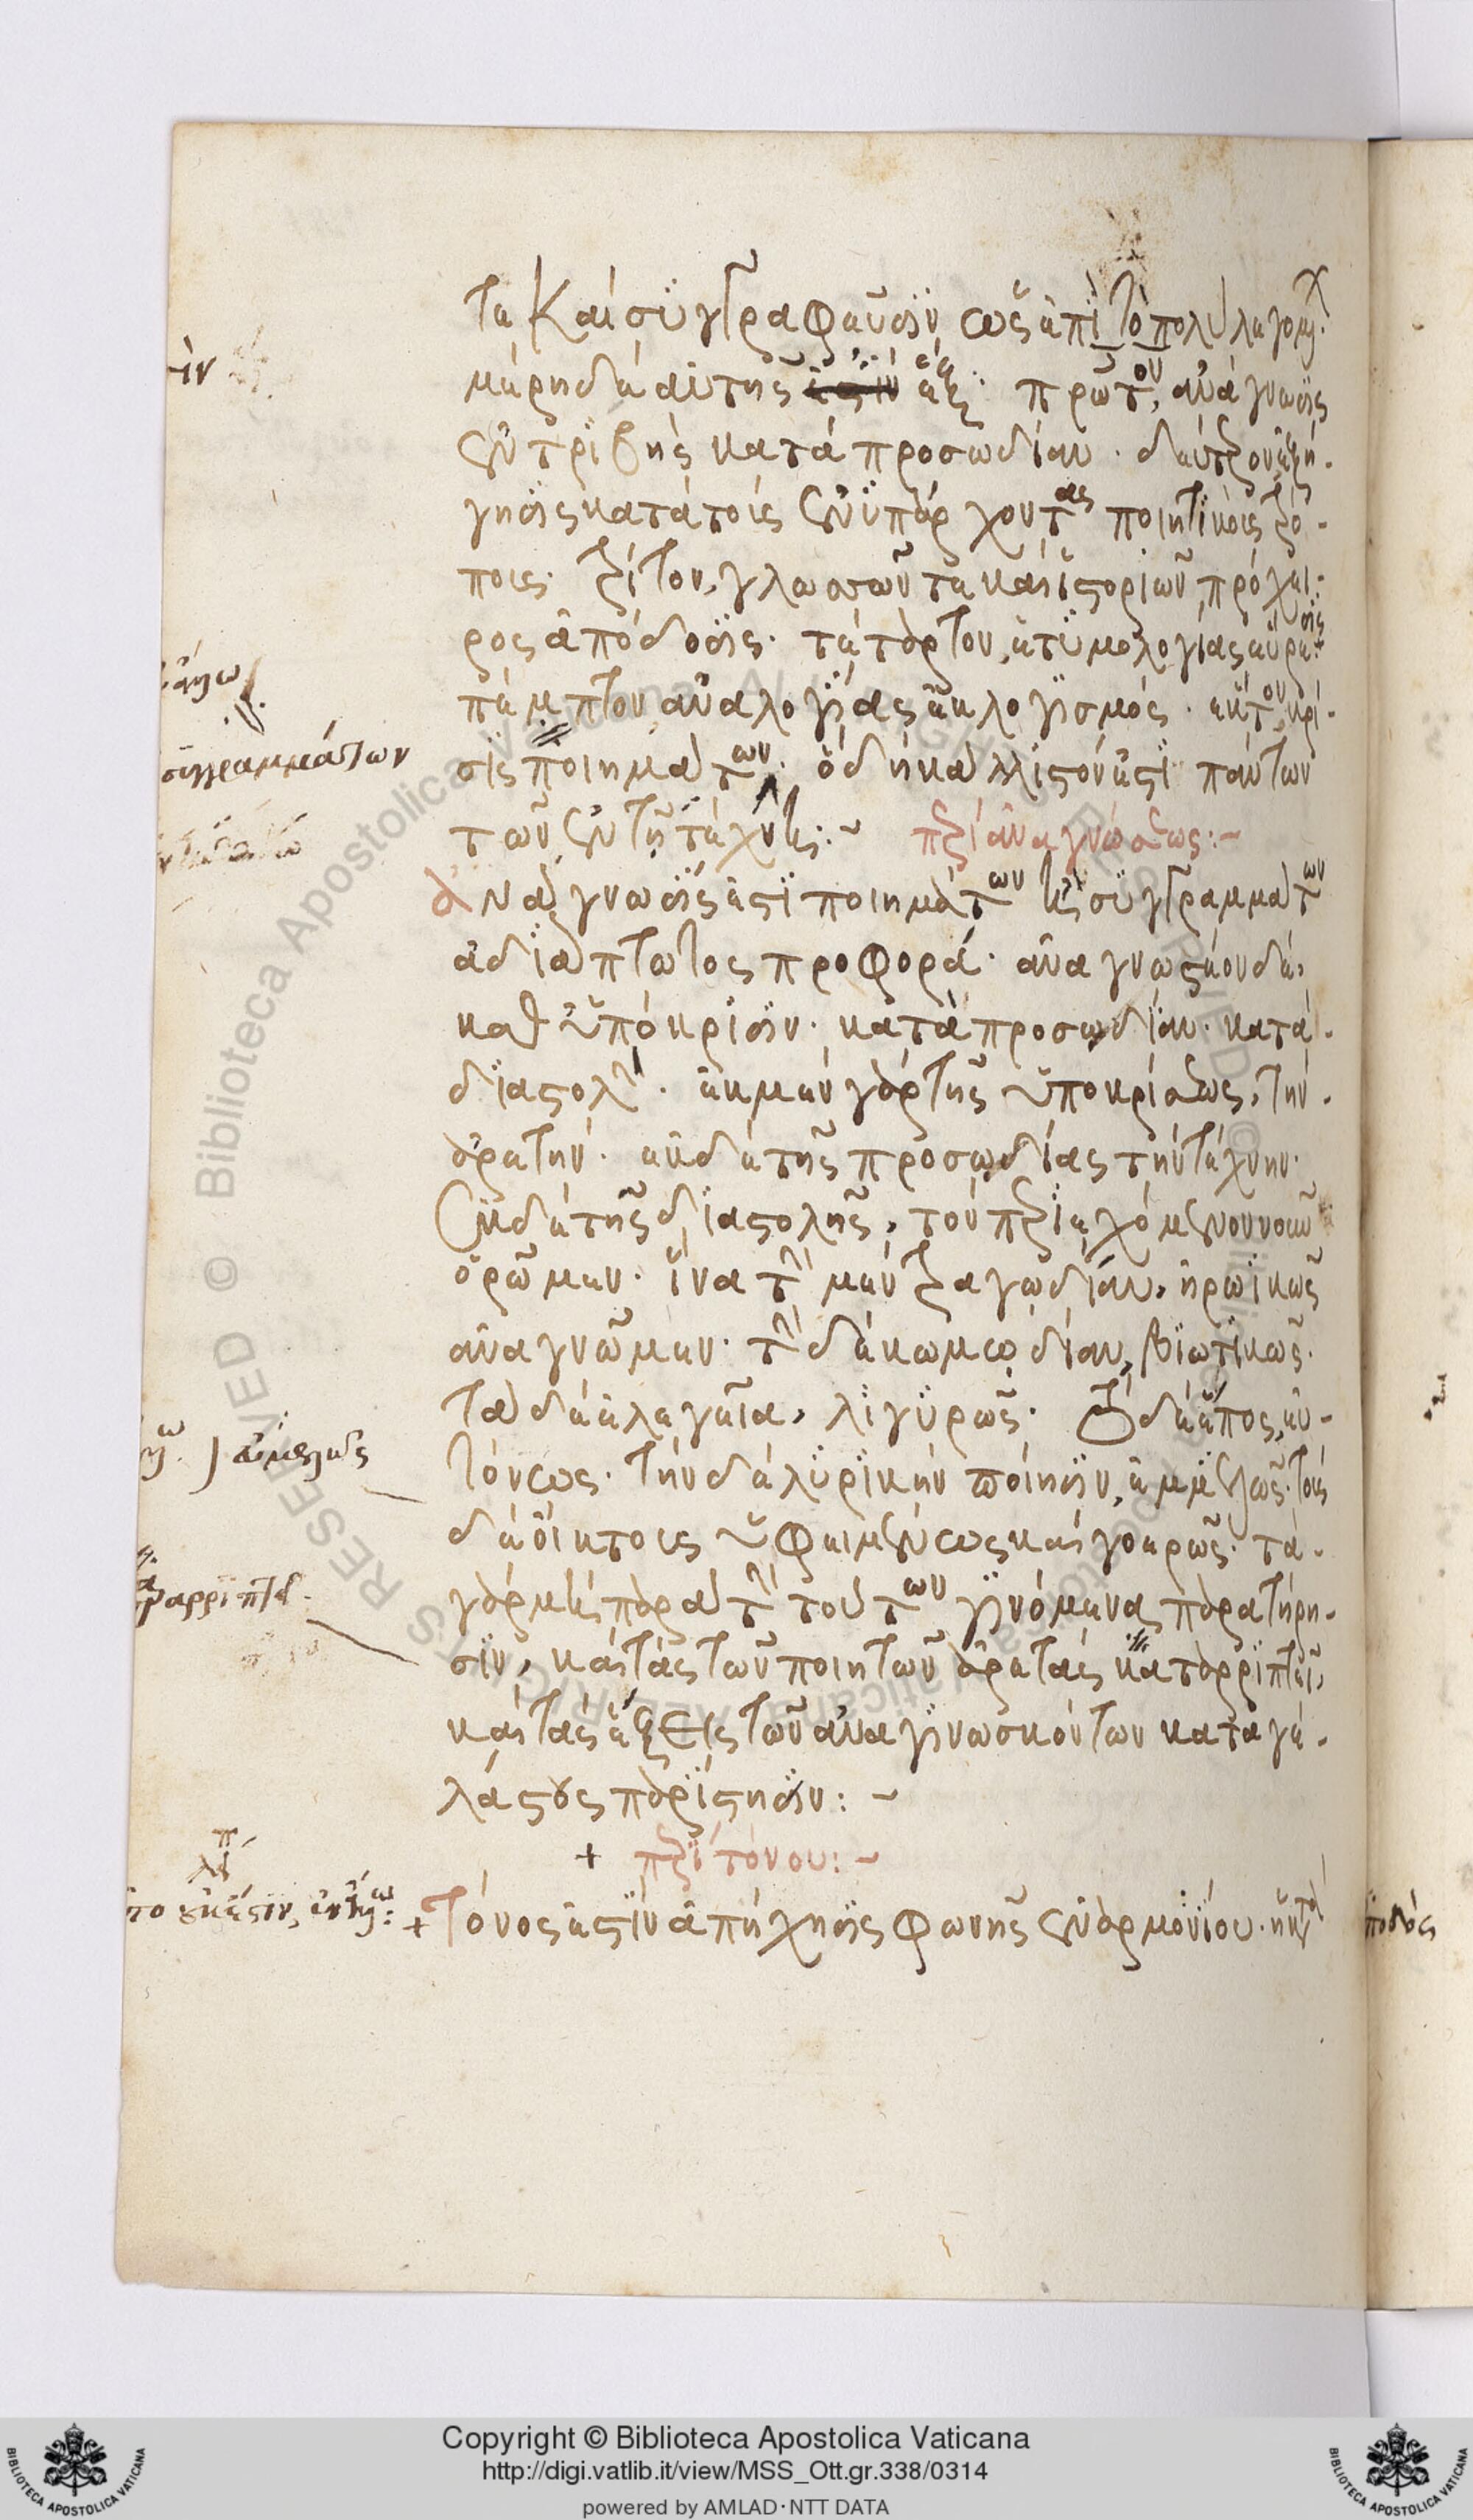 τε καὶ συγγραφεῦσιν ὡς ἐπὶ τὸ πολὺ λεγομ.
μέρη δὲ αὐτῆς ἕξ· πρῶτον, ἀνάγνωσις
ἐντριβὴς κατὰ προσωδίαν· δεύτερον ἐξή-
γησις κατὰ τοὺς ἐνυπάρχοντας ποιητικοὺς τρό-
πους· τρίτον, γλωσσῶν τε καὶ ἱστοριῶν πρόχει-
ρος ἀπόδοσις· τέταρτον, ἐτυμολογίας εὕρεσις
πέμπτον ἀναλογίας ἐκλογισμός· ἕκτον, κρί-
σις ποιημάτων· ὃ δὴ κάλλιστόν ἐστι πάντων
τῶν ἐν τῇ τέχνῃ:~ περὶ ἀναγνώσεως:~
Ἀνάγνωσίς ἐστι ποιημάτων καὶ συγγραμμάτων
ἀδιάπτωτος προφορά· ἀναγνωστέον δὲ,
καθ' ὑπόκρισιν· κατὰ προσωδίαν· κατὰ
διαστολήν· ἐκ μὲν γὰρ τῆς ὑποκρίσεως, τὴν
ἀρετήν· ἐκ δὲ τῆς προσωδίας τὴν τέχνην·
ἐκ δὲ τῆς διαστολῆς, τὸν περιεχόμενον νοῦν
ὁρῶμεν· ἵνα τὴν μὲν τραγωδίαν, ἡρωϊκῶς
ἀναγνῶμεν· τὴν δὲ κωμωδίαν, βιωτικῶς·
τὰ δὲ ἐλεγεῖα, λιγυρῶς· τὸ δὲ ἔπος, εὐ-
τόνως· τὴν δὲ λυρικὴν ποίησιν, ἐμμελῶς· τοὺς
δὲ οἴκτους ὑφειμένως καὶ γοερῶς· τὰ
γὰρ μὴ παρὰ τὴν τούτων γινόμενα παρατήρη-
σιν, καὶ τὰς τῶν ποιητῶν ἀρετὰς καταρριπτεῖ,
καὶ τὰς ἕξεις τῶν ἀναγινωσκόντων καταγε-
λάστους παρίστησιν:~
+ περὶ τόνου:~
+ Τόνος ἐστὶν ἀπήχησις φωνῆς ἐναρμονίου· ἡ κατὰ
συγγραμμάτων
Copyright © Biblioteca Apostolica Vaticana
http://digi.vatlib.it/view/MSS_Ott.gr.338/0314
powered by AMLAD·NTT DATA
BIBLIOTECA APOSTOLICA VATICANA
BIBLIOTECA APOSTOLICA VATICANA